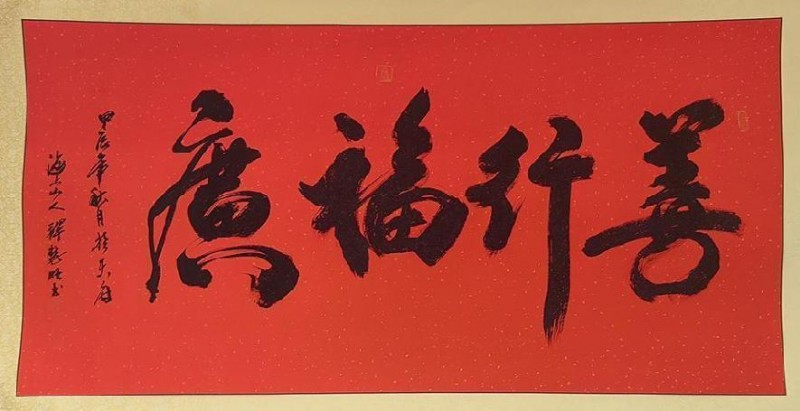 善行福廣
甲辰年秋月於京府
海山人釋慧旺書